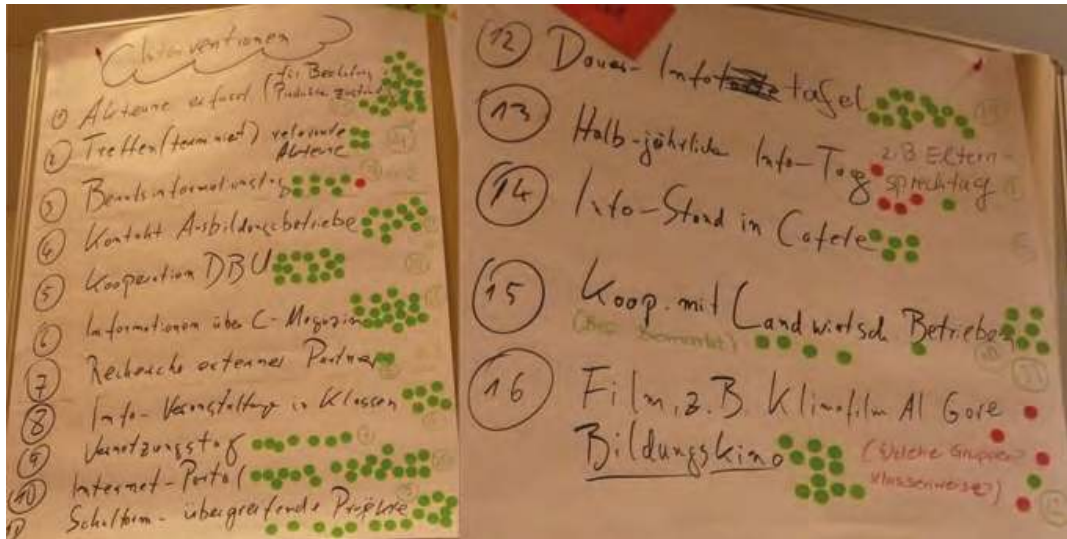 Interventionen
① Akteure erfasst (für Bearbeitung
② Treffen (terminiert) relevante
Akteure
③ Berufsinformationstag
④ Kontakt Ausbildungsbetriebe
⑤ Kooperation DBU
⑥ Informationen über C-Magazin
⑦ Recherche externer Partner
⑧ Info-Veranstaltung in Klassen
⑨ Vernetzungstag
⑩ Internet-Portal
⑪ Schulform-übergreifende Projekte
⑫ Dauer-Info tafel
⑬ Halb-jährliche Info-Tag z.B. Eltern-
sprechtag
⑭ Info-Stand in Cafete
⑮ Koop. mit Landwirtsch. Betrieben
⑯ Film, z.B. Klimafilm Al Gore
Bildungskino
(Welche Gruppen?
klassenweise?)